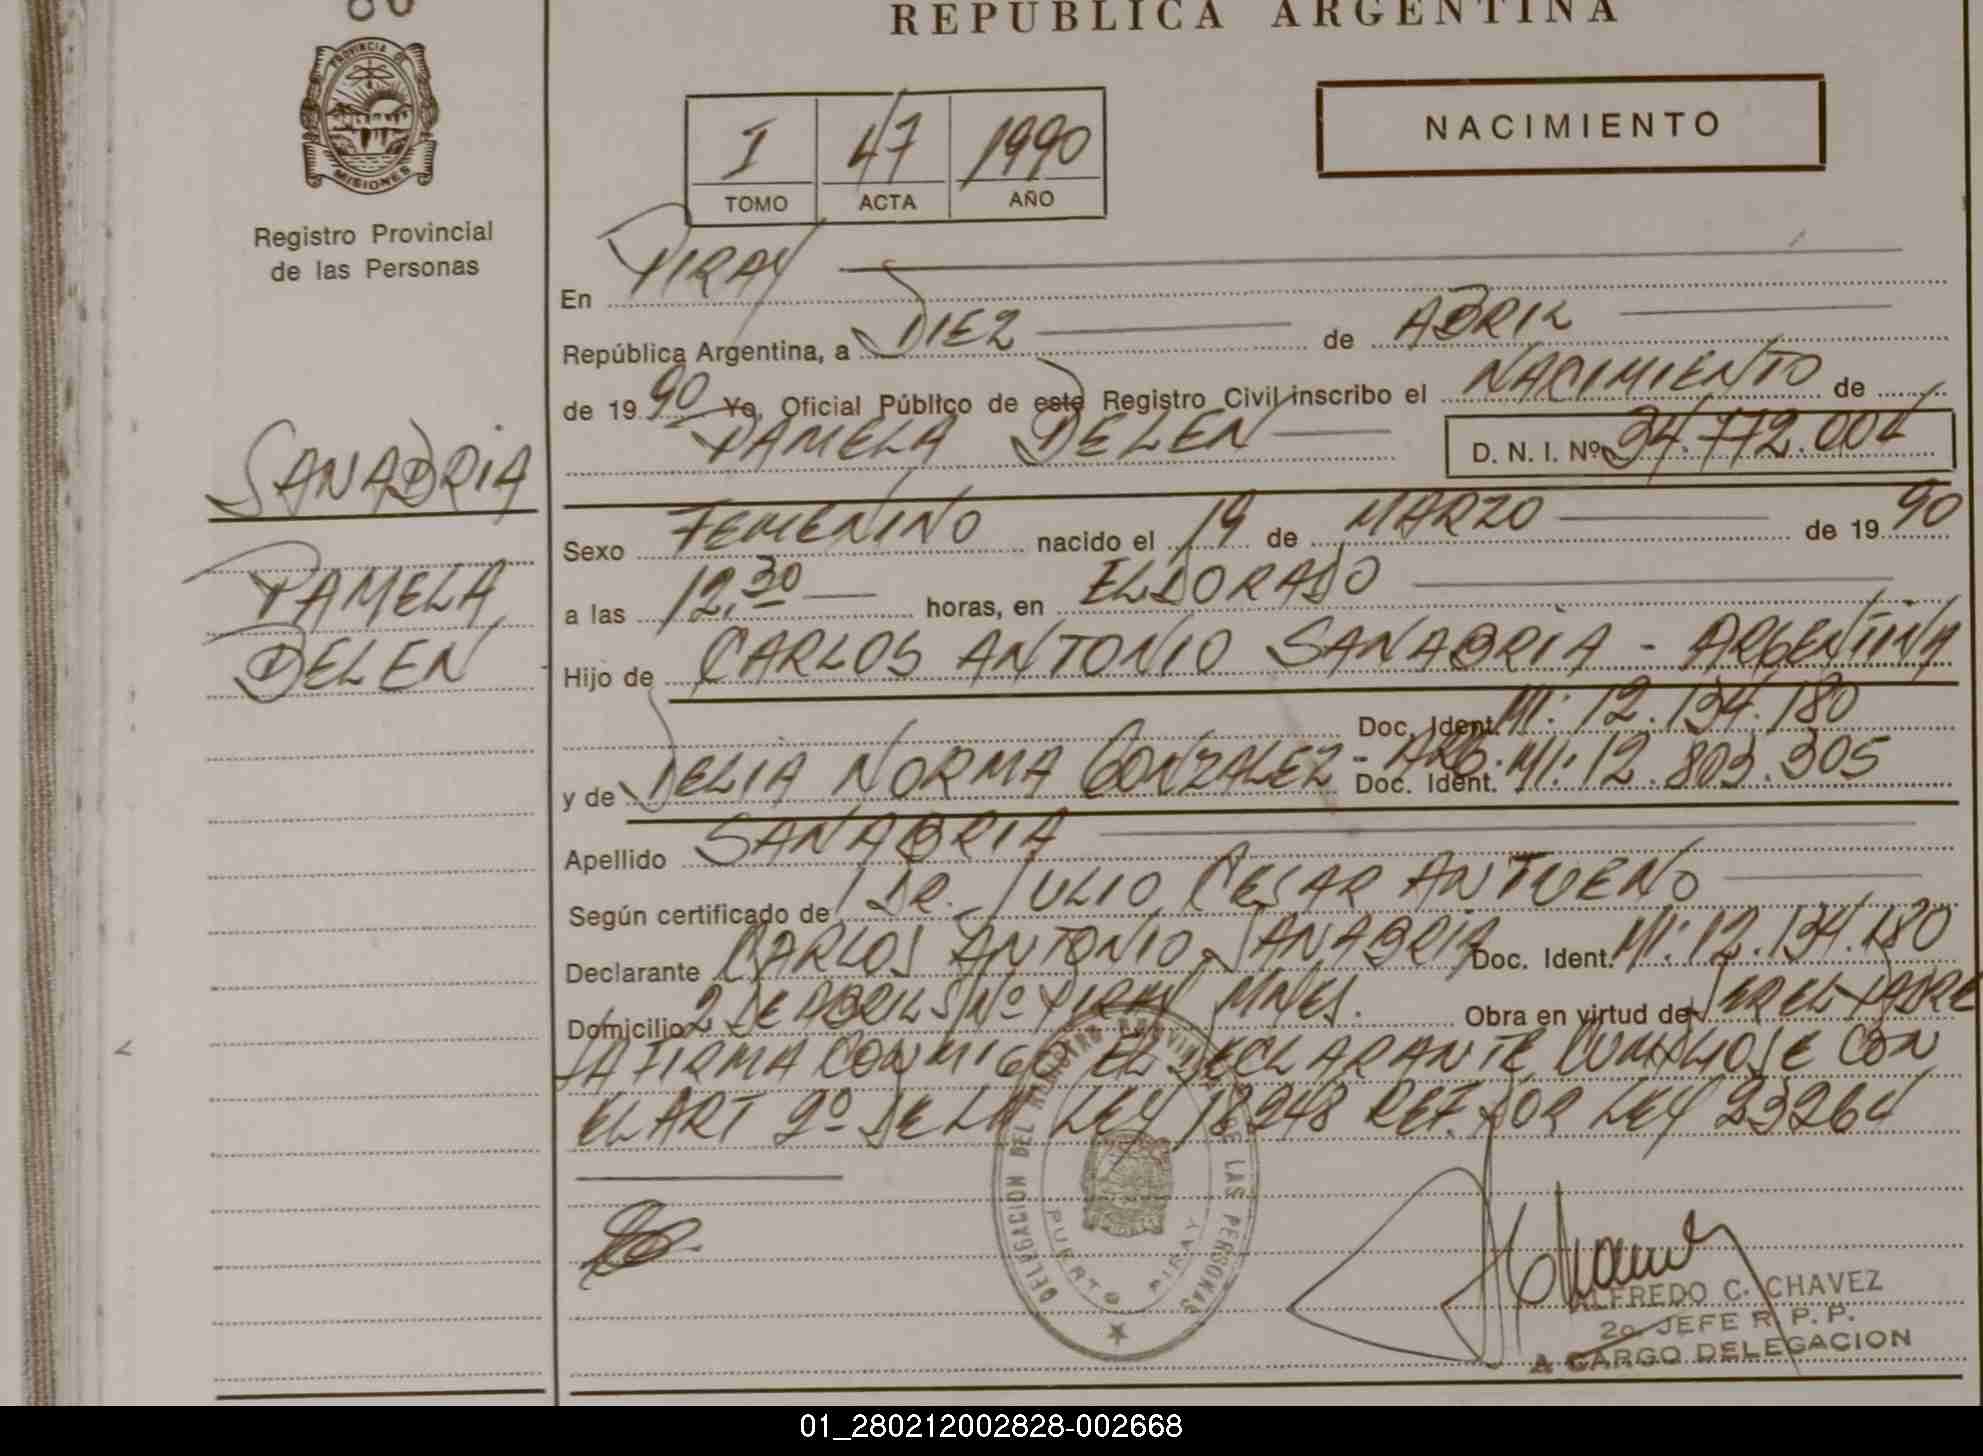 REPUBLICA ARGENTINA
PROVINCIA DE
MISIONES
Registro Provincial
de las Personas
I 47 1990
TOMO ACTA AÑO
NACIMIENTO
En PIRAY
República Argentina, a DIEZ de ABRIL
de 19 90 Yo, Oficial Público de este Registro Civil inscribo el NACIMIENTO de
PAMELA BELEN D. N. I. Nº 34.772.004
SANABRIA
PAMELA
BELEN
Sexo FEMENINO nacido el 19 de MARZO de 19 90
a las 12,30 horas, en ELDORADO
Hijo de CARLOS ANTONIO SANABRIA - ARGENTINA
Doc. Ident. MI: 12.134.180
y de DELIA NORMA GONZALEZ - ARG. Doc. Ident. MI: 12.803.305
Apellido SANABRIA
Según certificado de DR. JULIO CESAR ANTUENO
Declarante CARLOS ANTONIO SANABRIA Doc. Ident. MI: 12.134.180
Domicilio 2 DE ABRIL S/Nº PIRAY MNES. Obra en virtud de SER EL PADRE
FIRMA CONMIGO EL DECLARANTE CON
EL ART 2º DE LA LEY 18248 REF. POR LEY 23264
DELEGACION DEL REGISTRO PROVINCIAL DE LAS PERSONAS
PUERTO PIRAY
ALFREDO C. CHAVEZ
2o. JEFE R. P. P.
A CARGO DELEGACION
01_280212002828-002668